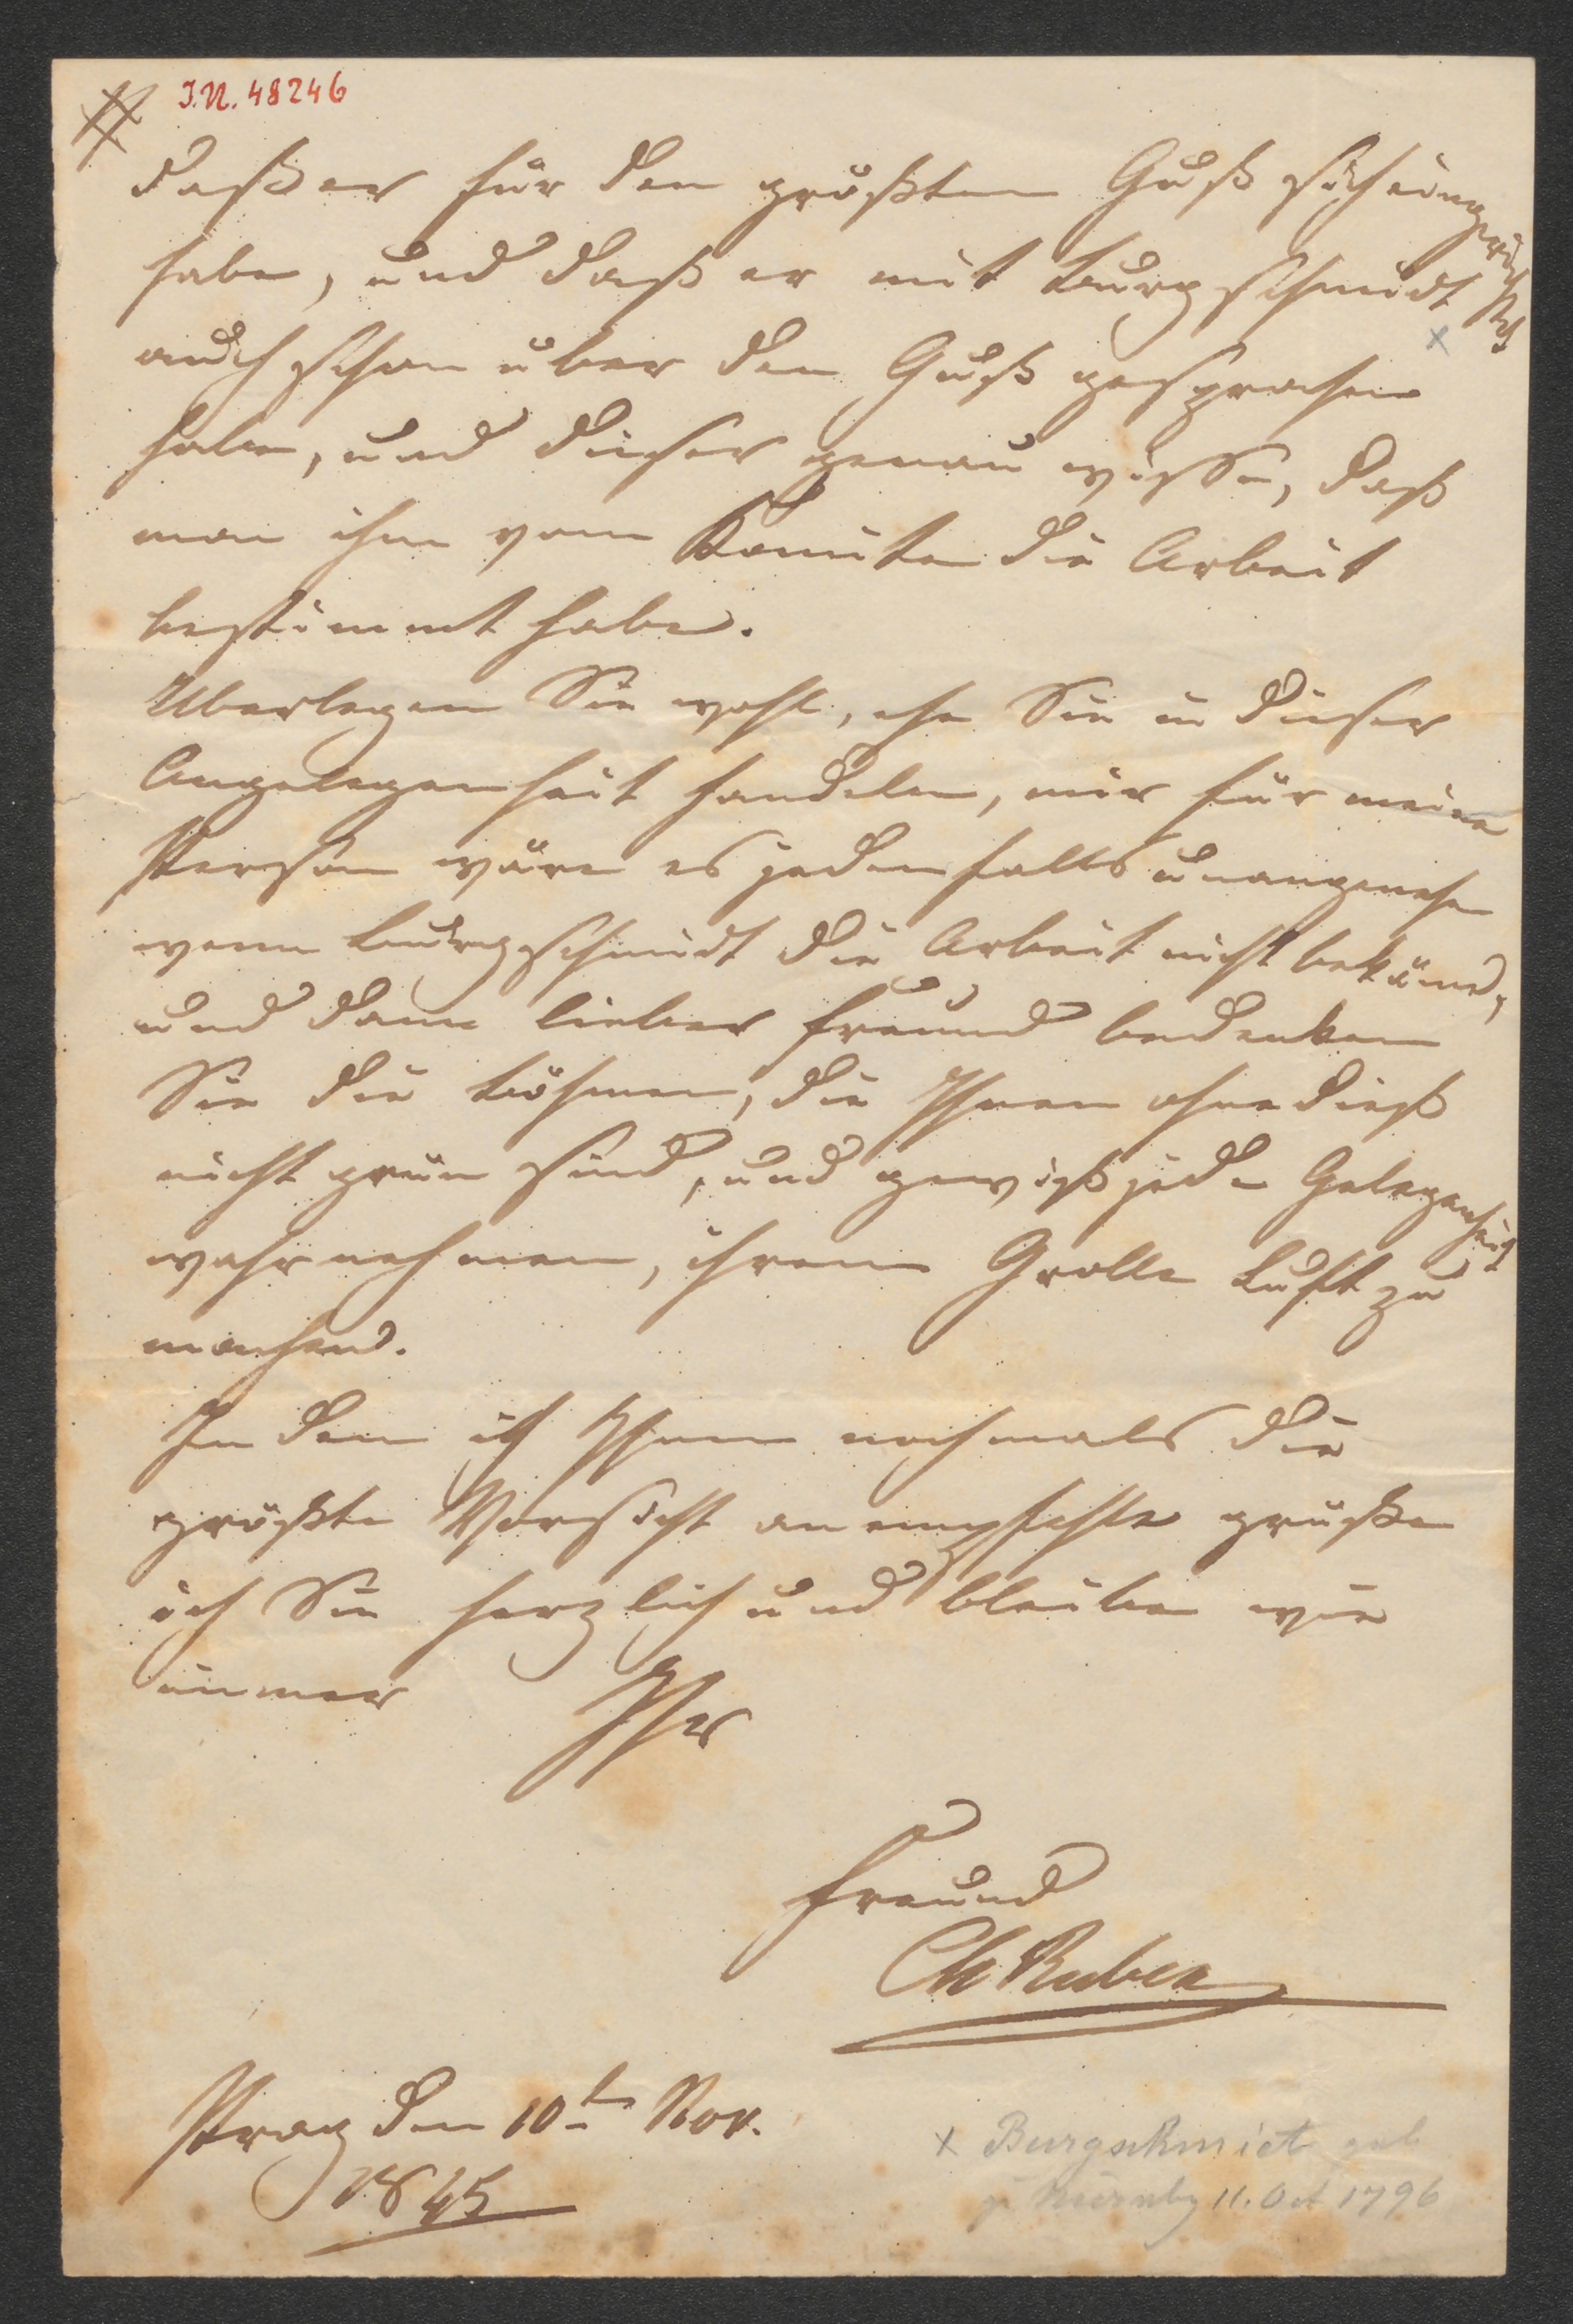 J.N. 48246
daß er für den größten Guß sich eingerichtet
habe, und daß er mit Burgschmidt x
auch schon über den Guß gesprochen
habe, und dieser genau wisse, daß
man ihm vom Komite die Arbeit
bestimmt habe.
Uberlegen Sie wohl, ehe Sie in dieser
Angelegenheit handeln, mir für meine
Person wäre es jedenfalls unangenehm
wenn Burgschmidt die Arbeit nicht bekäme,
und dann lieber Freund bedenken
Sie die Böhmen, die Ihnen ohne dieß
nicht grün sind, und gewiß jede Gelegenheit
wahrnehmen, ihrem Grolle Luft zu
machen.
In dem ich Ihnen nochmals die
größte Vorsicht anempfehle grüße
ich Sie herzlich und bleibe wie
immer Ihr
Freund
Ch Ruben
Prag den 10t Nov.
1845
x Burgschmiet geb
z. Nürnbg 11. Oct 1796